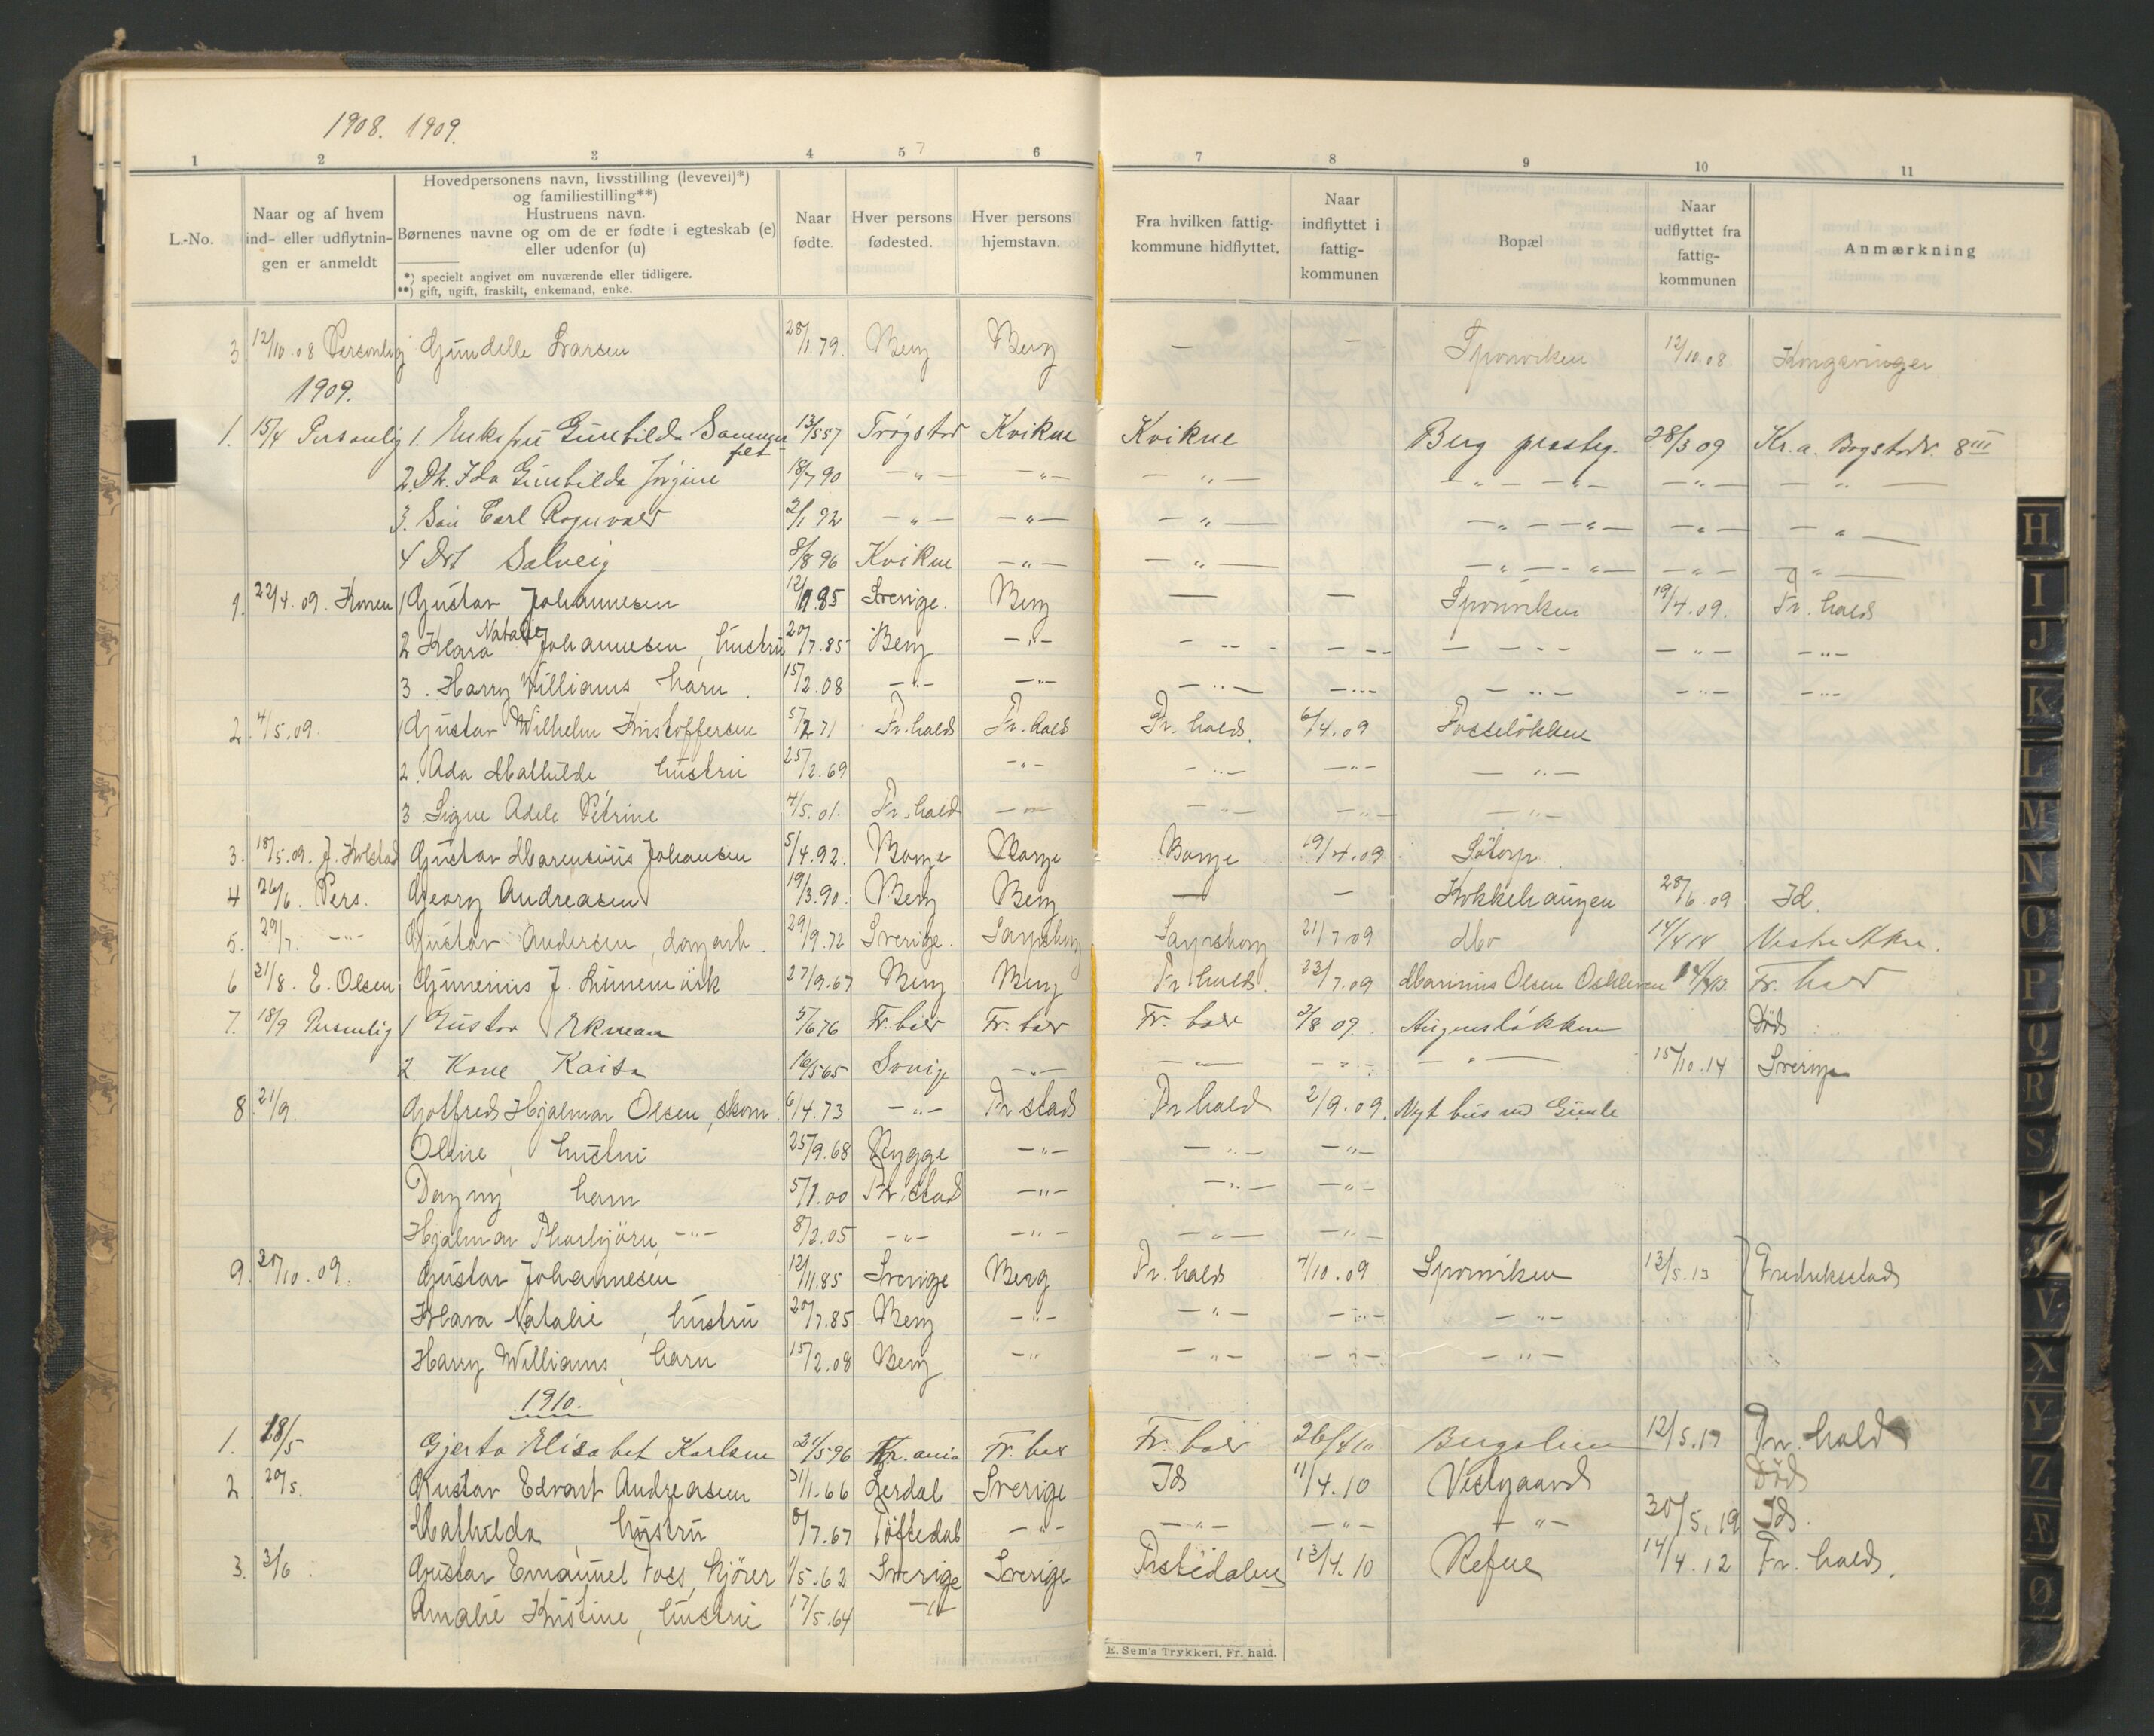 1908. 1909.
1 2 3 4 5 7 6 7 8 9 10 11
L.-No.
Naar og af hvem
ind- eller udflytnin-
gen er anmeldt
Hovedpersonens navn, livsstilling (levevei)*)
og familiestilling**)
Hustruens navn.
Børnenes navne og om de er fødte i egteskab (e)
eller udenfor (u)
*) specielt angivet om nuværende eller tidligere.
**) gift, ugift, fraskilt, enkemand, enke.
Naar
fødte.
Hver persons
fødested.
Hver persons
hjemstavn.
Fra hvilken fattig-
kommune hidflyttet.
Naar
indflyttet i
fattig-
kommunen
Bopæl
Naar
udflyttet fra
fattig-
kommunen
Anmærkning
3 12/10.08 Personlig Gundelle Larsen 28/1.79. Berg Berg — — Sponviken 12/10.08 Kongsvinger
1909.
1. 15/4 Personlig 1. Enkefru Gunhilda 13/5 57 Trøgstad Kvikne Kvikne Berg presteg. 28/3 09 Kr.a. Bogstadv. 8 III
2. Dt. Ida Gunhilda Jørgine 18/7 90 — " — — " — — " — — " — — " — — " — — " —
3. Søn Carl Rognvald 2/1 92 — " — — " — — " — — " — — " — — " — — " —
4 Dt Solveig 8/8 96 Kvikne — " — — " — — " — — " — — " — — " —
1. 22/4.09. Konen 1 Gustav Johannesen 12/11 85 Sverige. Berg — — Sponviken 19/4.09. Fr. hald
2 Klara Natalie Johannesen, hustru 20/7.85 Berg — " — — " — — " — — " — — " — — " —
3. Harry Williams barn. 15/2.08 — " — — " — — " — — " — — " — — " — — " —
2. 4/5.09. 1 Gustav Wilhelm Kristoffersen 5/2 71 Fr. hald Fr. hald Fr. hald. 6/4.09 Fosseløkken
2. Ada Mathilde hustru 25/2.69 — " — — " — — " — — " —
3 Signe Adele Petrine 4/5.01. Fr. hald — " — — " — — " — — " —
3. 18/5.09. J. Kolstad Gustav Marensius Johansen 5/4.92. Borge Borge Borge 19/4.09 Søtorp
4 26/6. Pers. Georg Andreasen 19/3.90. Berg Berg — — Kokkehaugen 28/6.09 Id.
5. 29/7. — " — Gustav Andersen, dagarb. 29/9.72 Sverige. Sarpsborg Sarpsborg 21/7 09 Mo 14/4 14 Vestre Aker.
6 31/8. E. Olsen Gunerius J. 27/9.67 Berg Berg Fr. hald. 23/7.09 Marinius Olsen Fr. hald
7. 18/9 Personlig 1 Gustav Ekman 5/6 76 Fr. hald Fr. hald Fr. hald 3/8 09. Augustløkken Død
2. Kone Kaisa 16/5 65 Sverige — " — — " — — " — — " — 15/10.14 Sverige
8. 21/9. Gotfred Hjalmar Olsen, skom. 6/4.73 — " — Fr. stad Fr hald 2/9.09. Nyt hus ved Gimle
Oline, hustru 25/9.68 Rygge — " — — " — — " —
Dagny barn 5/1.00 Fr. stad — " — — " — — " —
Hjalmar Thorbjörn, — " — 8/2.05 — " — — " — — " — — " —
9. 20/10.09. Gustav Johannesen 12/11.85 Sverige Berg Fr. hald 4/10.09 Sponviken 13/5.13 Fredriksstad
Klara Natalie, hustru 20/7.85 Berg — " — — " — — " — — " —
Harry Williams, barn 15/2.08 Berg — " — " — — " — — " —
1910.
1. 18/5 Gjerta Elisabet Karlsen 21/5 96 Kr.ania Fr. hald Fr. hald 26/4 10 12/5.17 Fr. hald
2 20/5. Gustav Edvart Andreasen 31/1.66 Sverige Id 11/4.10 Vestgaard Død
Mathilda, hustru 8/7.67 Töftedal — " — — " — — " — — " — 30/5.19 Id.
3. 3/6. Gustav Emanuel Foss, kjörer 1/5.62 Sverige Sverige Tistedalen 13/4.10 Refne 14/4.12 Fr. hald.
Amalie Kristine, hustru 17/5.64 — " —
E. Sem's Trykkeri, Fr. hald.
H
I
J
K
L
M
N
O
P
Q
R
S
V
X
Y
Z
Æ
Ø